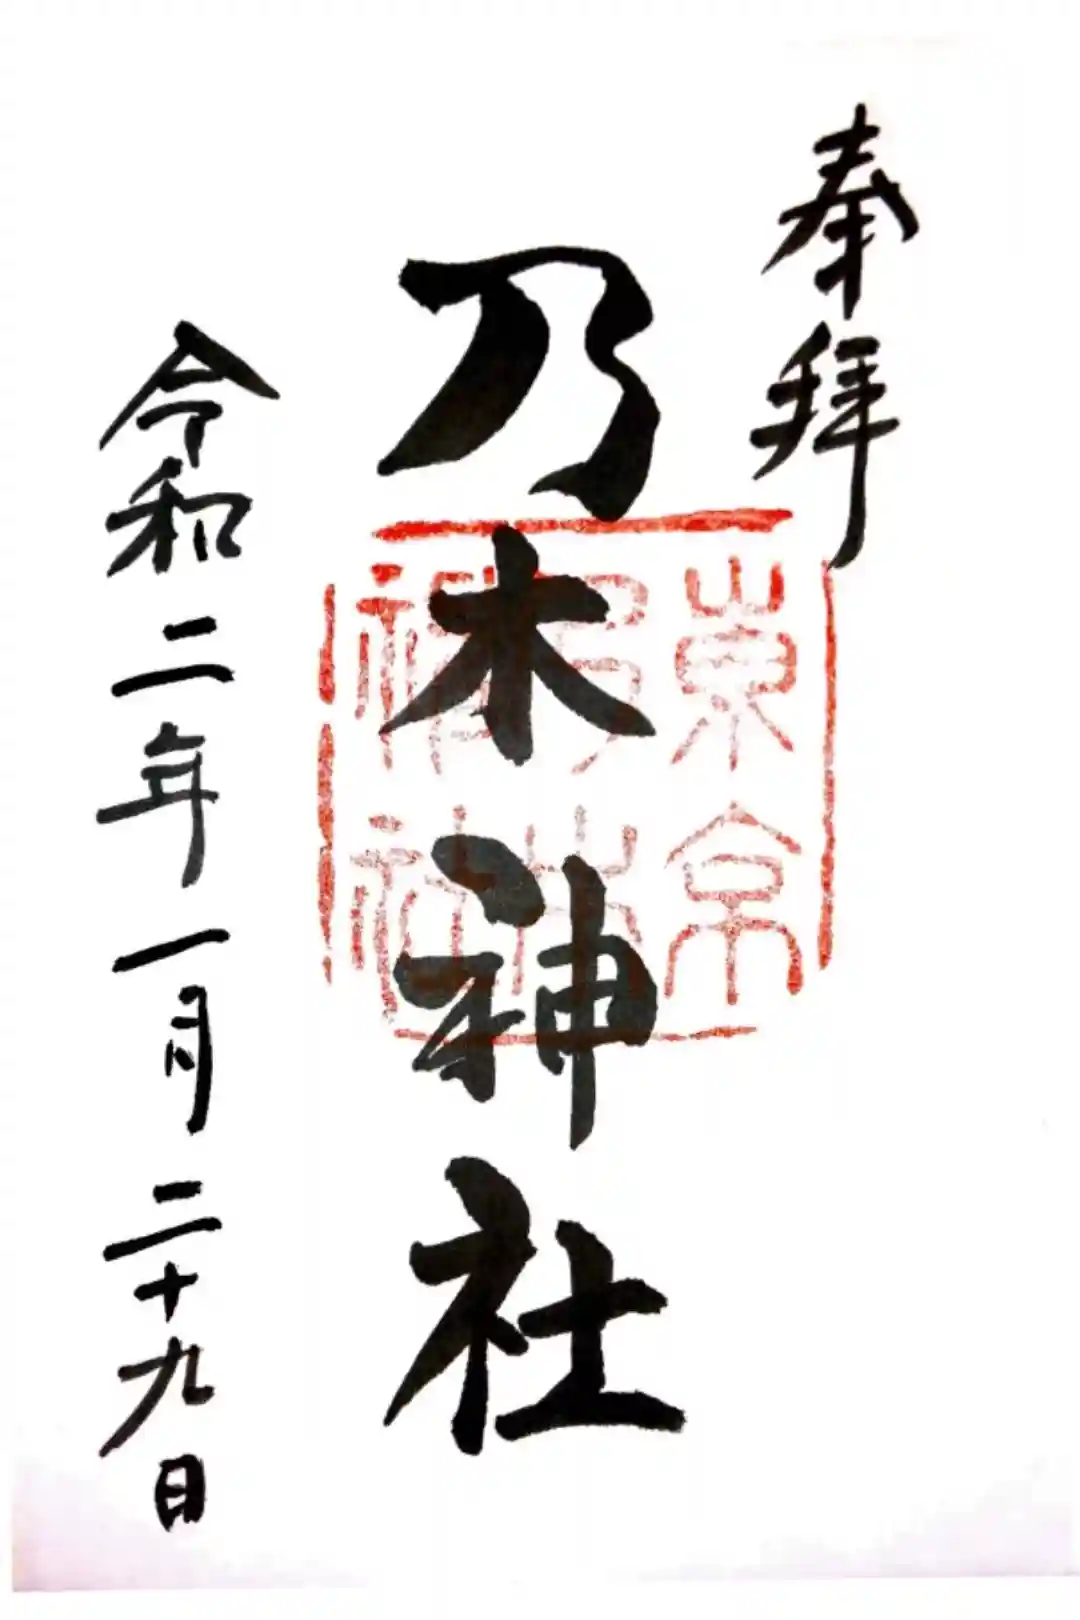 奉拝
乃木神社
東京
乃木
神社
令和二年一月二十九日